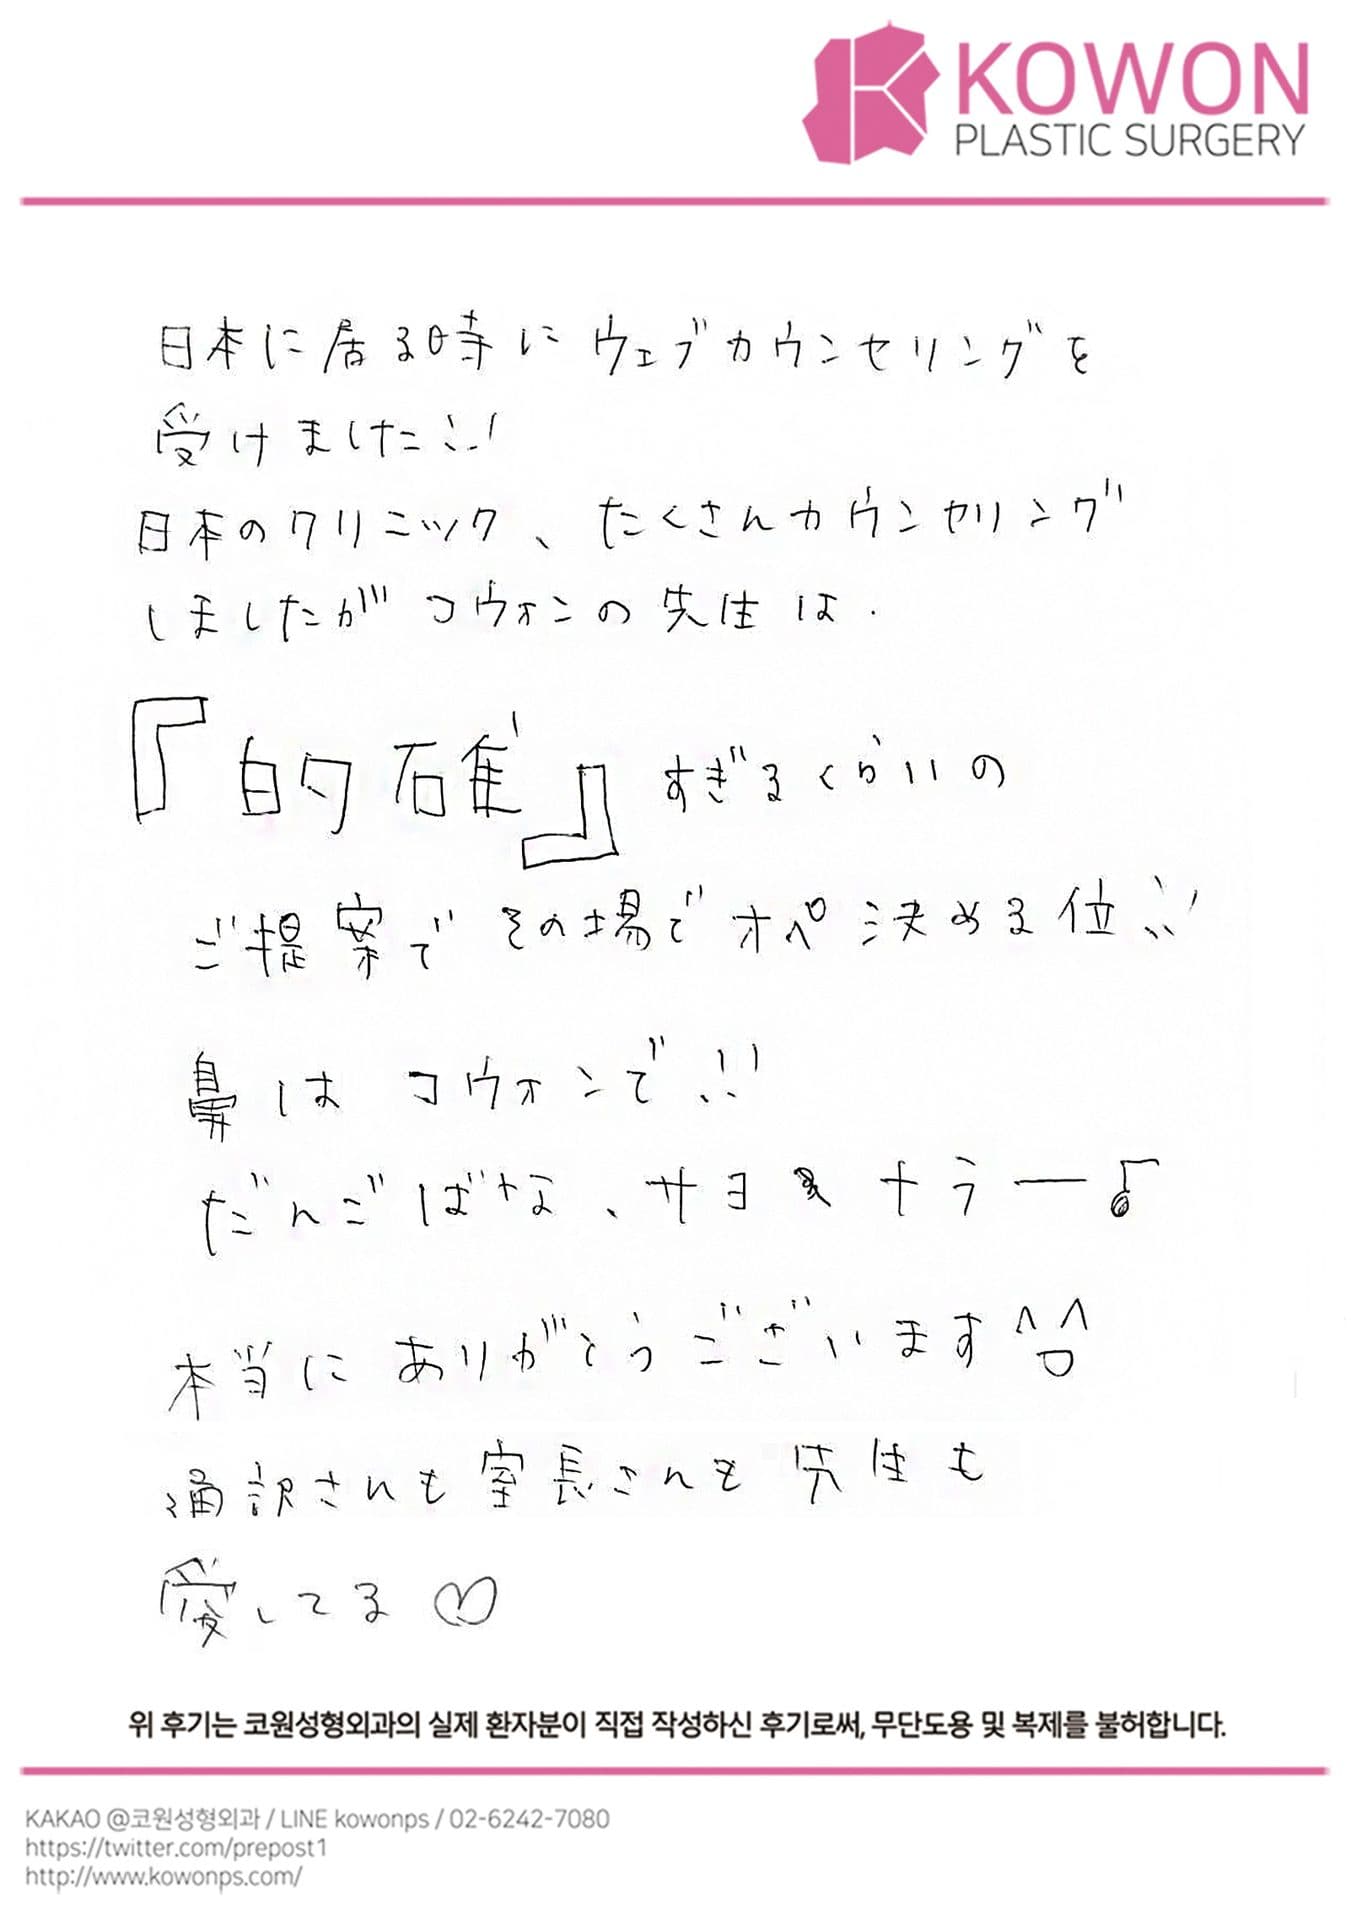 KOWON
PLASTIC SURGERY
日本に居る時にウェブカウンセリングを
受けました!!
日本のクリニック、たくさんカウンセリング
しましたがコウォンの先生は.
『的確』すぎるくらいの
ご提案でその場でオペ決める位!!
鼻はコウォンで!!
だんごばな、サヨナラー♪
本当にありがとうございます^ㅁ^
通訳さんも室長さんも先生も
愛してる♡
위 후기는 코원성형외과의 실제 환자분이 직접 작성하신 후기로써, 무단도용 및 복제를 불허합니다.
KAKAO @코원성형외과 / LINE kowonps / 02-6242-7080
https://twitter.com/prepost1
http://www.kowonps.com/